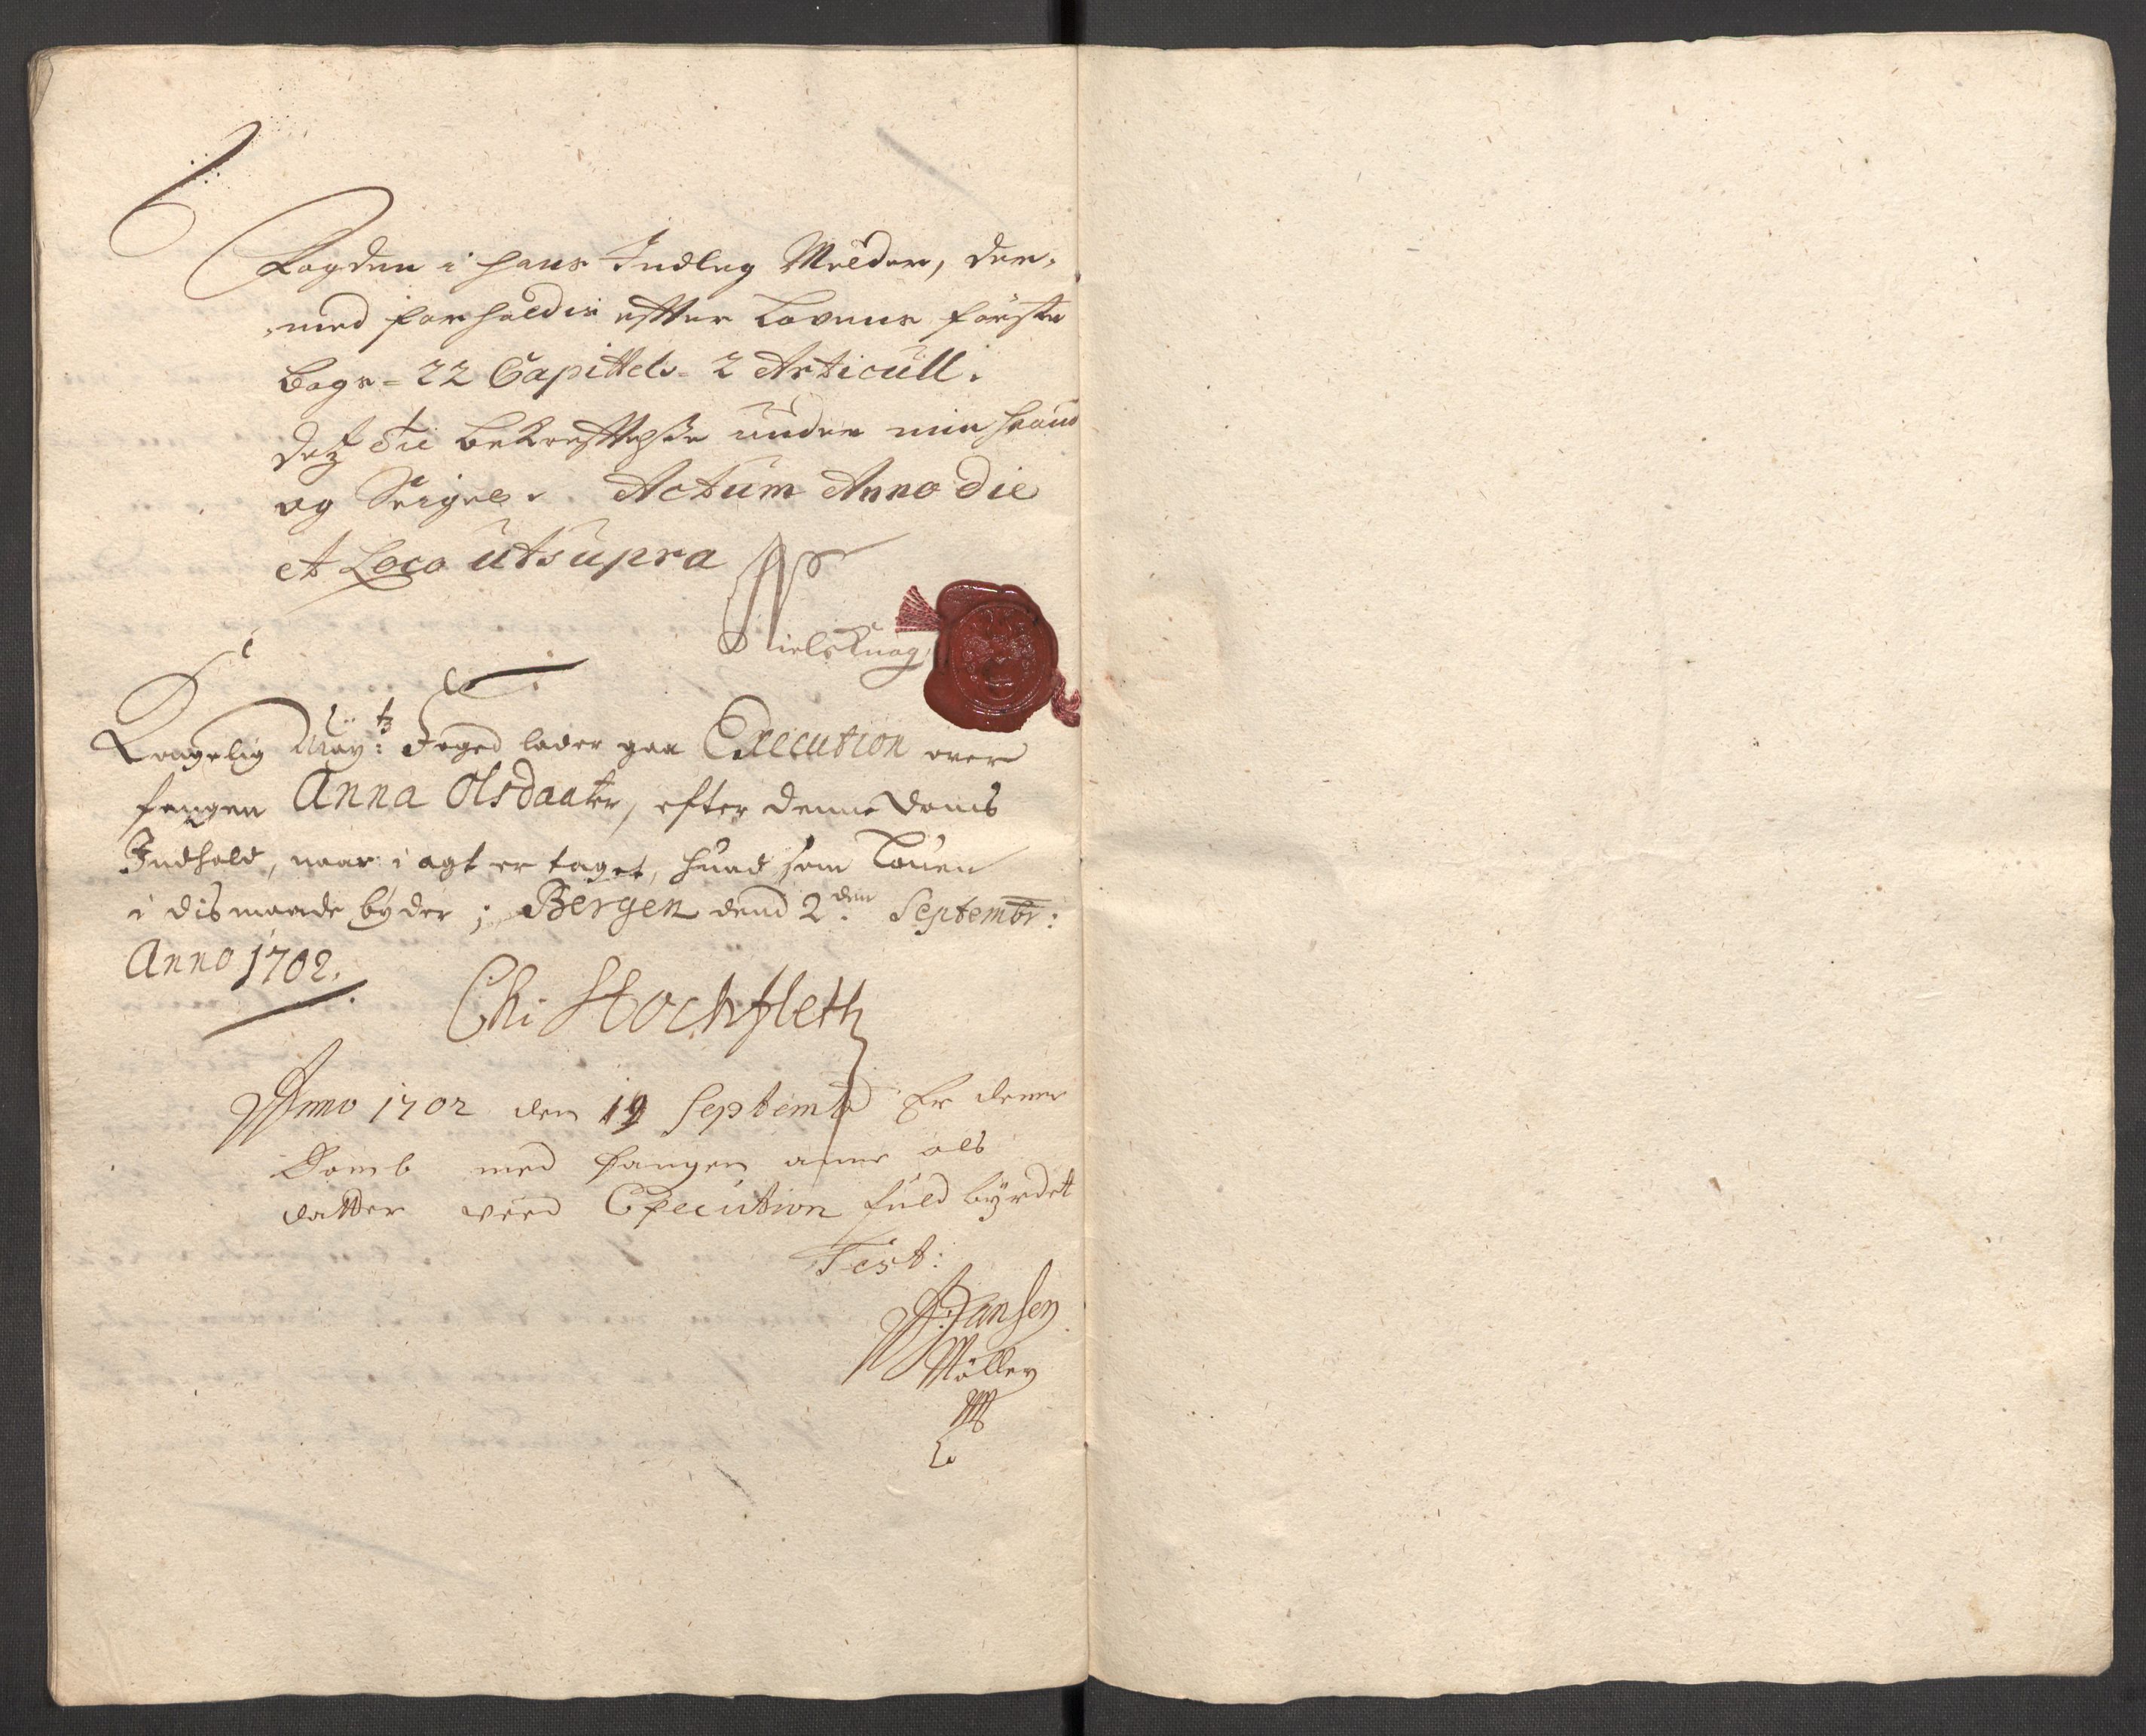 Fogden i hans Indleg Melder, der-
med forholdis effter Lovens første
Bogs= 22 Capittels= 2 Articull.
Dez til bekrefftelse under min Haand
og Seigel. Actum Anno die
et Loco utsupra
Niels Knag
Kongelig May:tz Foged lader gaa Execution over
fangen Anna Olsdaater, efter denne Doms
Indhold, naar i agt er taget, huad som Louen
i dis maade byder; Bergen dend 2.den Septembr:
Anno 1702.
Chr Stockfleth
Anno 1702 den 19 Septemb Er denne
Domb med fangen anne ols
datter veed Execution fuldbyrdet
Test:
Jansen
Møller